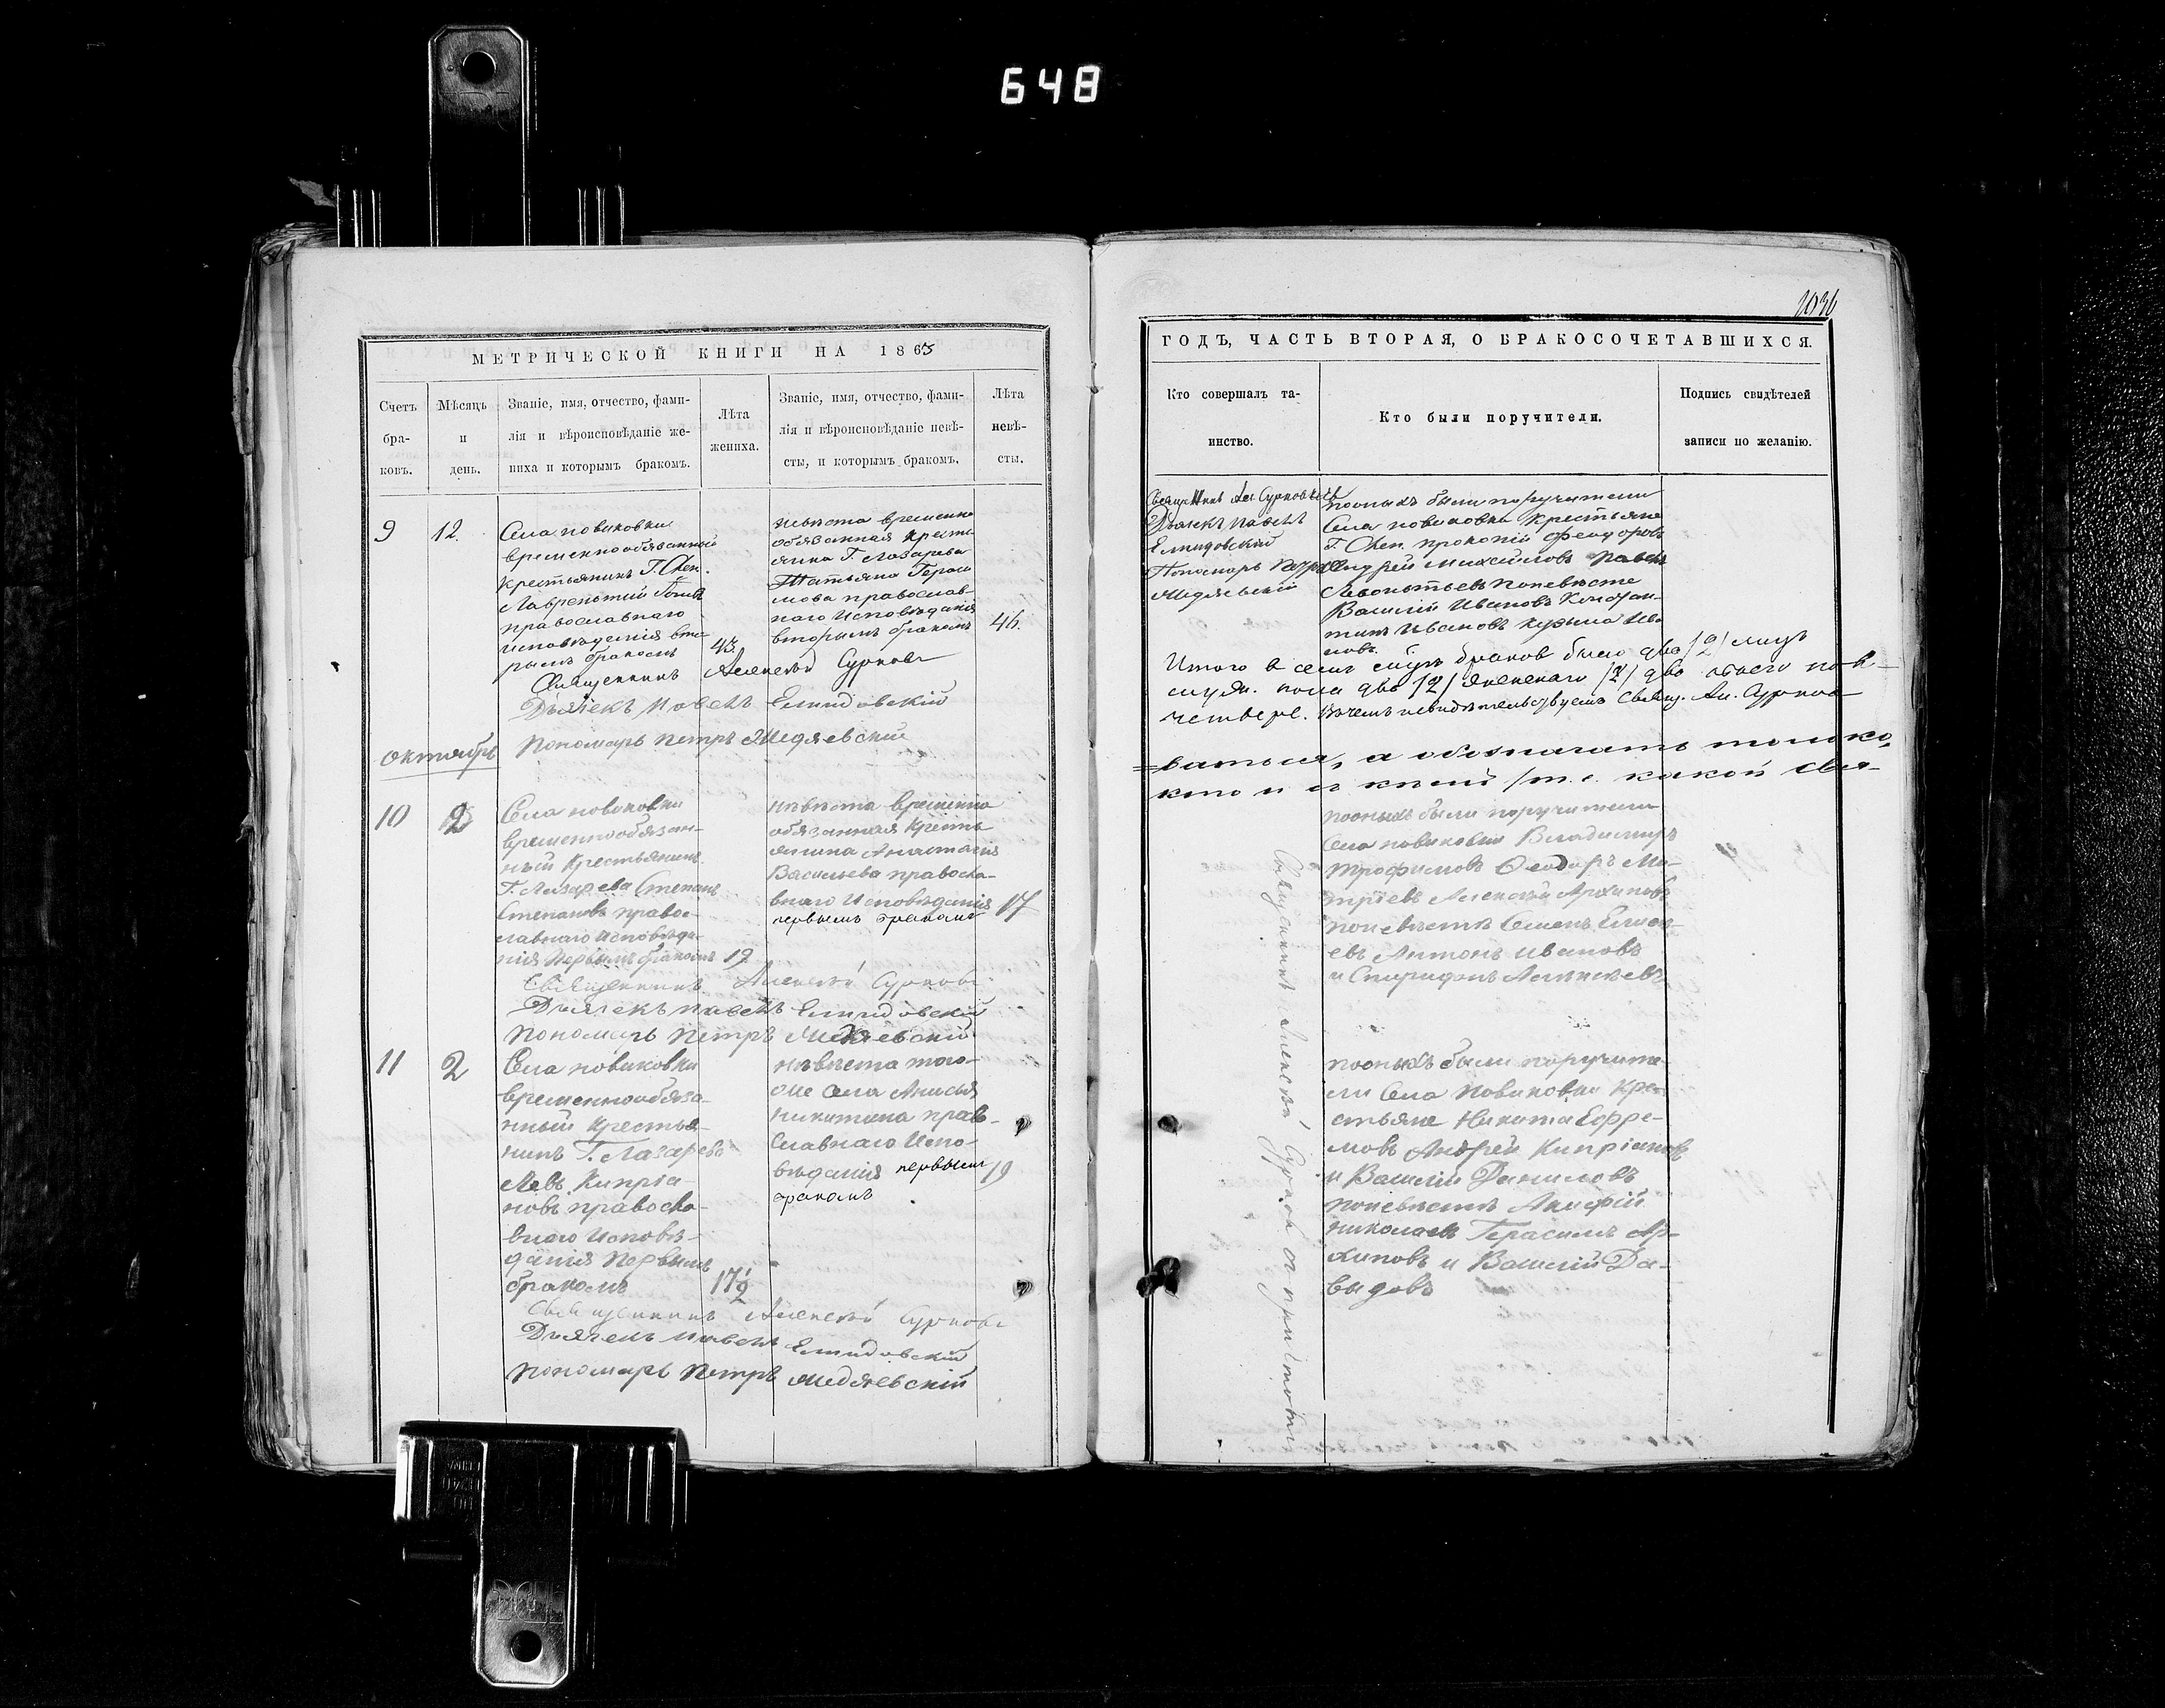 648
МЕТРИЧЕСКОЙ КНИГИ НА 1865
Счетъ браковъ.
Мѣсяцъ и день.
Званіе, имя, отчество, фами-
лія и вѣроисповѣданіе же-
ниха и которымъ бракомъ.
Лѣта
жениха.
Званіе, имя, отчество, фами-
лія и вѣроисповѣданіе невѣ-
сты, и которымъ бракомъ.
Лѣта
невѣ-
сты.
9
12.
Села Новиковки
временнообязанный
крестьянинъ Г.
Лаврентий
православнаго
исповѣданія вто-
рымъ бракомъ
43.
невѣста временно
обязанная кресть
янка Г. Лазарева
Татьяна Гераси
мова православ-
наго исповѣданія
вторымъ бракомъ
46.
Священникъ Алексѣй Сурковъ
Дьячекъ Павелъ Елпидовскій
Пономарь Петръ Медяевскій
октябрь
10
2
Села Новиковки
временнообязан-
ный крестьянинъ
Г. Лазарева Степанъ
Степановъ правос-
лавнаго исповѣда-
нія первымъ бракомъ 19
невѣста временно
обязанная кресть
янина Анастасія
Васильева правосла-
внаго исповѣданія
первымъ бракомъ
17
Священникъ Алексѣй Сурковъ
Дьячекъ Павелъ Елпидовскій
Пономарь Петръ Медяевскій
11
2
Села Новиковки
временнообяза-
нный крестья-
нинъ Г. Лазарева
Левъ Кипріа-
новъ правосла-
внаго исповѣ-
данія первымъ
бракомъ
17½
невѣста того-
же села Анисья
Никитина прав-
славнаго испо-
вѣданія первымъ
бракомъ
19
Священникъ Алексѣй Сурковъ
Дьячекъ Павелъ Елпидовскій
Пономарь Петръ Медяевскій
ГОДЪ, ЧАСТЬ ВТОРАЯ, О БРАКОСОЧЕТАВШИХСЯ.
Кто совершалъ та-
инство.
Кто были поручители.
Подпись свидѣтелей
записи по желанію.
Священникъ Ал. Сурковъ
Дьячекъ Павелъ
Елпидовскій
Пономарь Петръ
Медяевскій
поонихъ были поручители
Села Новиковки крестьяне
Г. Прокопій Феодоровъ
Андрей Михайловъ Павелъ
Леонтьевъ поневѣсте
Василій Ивановъ Констан-
тинъ Ивановъ Кузьма Ива
новъ
Итого в семъ браков было два /2/ лицъ
муж. пола два /2/ женскаго /2/ два обоего пола
четверо. Вчемъ и свидѣтельствуемъ Свящ. Ал. Сурковъ
а обозначать только,
кто и съ кѣмъ /т. е. какой
поонихъ были поручители
Села Новиковки Владимиръ
Трофимовъ Феодоръ Ми-
тріевъ Алексѣй Архиповъ
поневѣстѣ Семенъ
евъ Антонъ Ивановъ
и Спиридонъ Алексѣевъ
Священникъ Алексѣй Сурковъ
поонихъ были поручите-
ли Села Новиковки кре-
стьяне Никита Ефре-
мовъ Андрей Кипріановъ
и Василій Даниловъ
поневѣстѣ
Николаевъ Герасимъ Ар-
хиповъ и Василій Да-
выдовъ